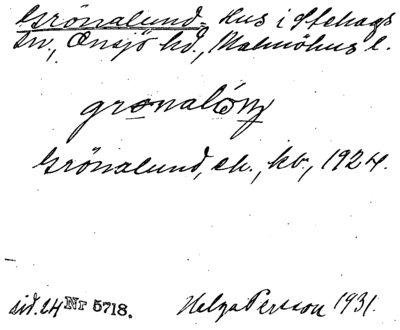 Grönalund = Hus i Stehags
sn, Onsjö hd., Malmöhus l.
Grönalund, ek., kb., 1924.
sid. 24 Nr 5718. Helga Persson 1931.